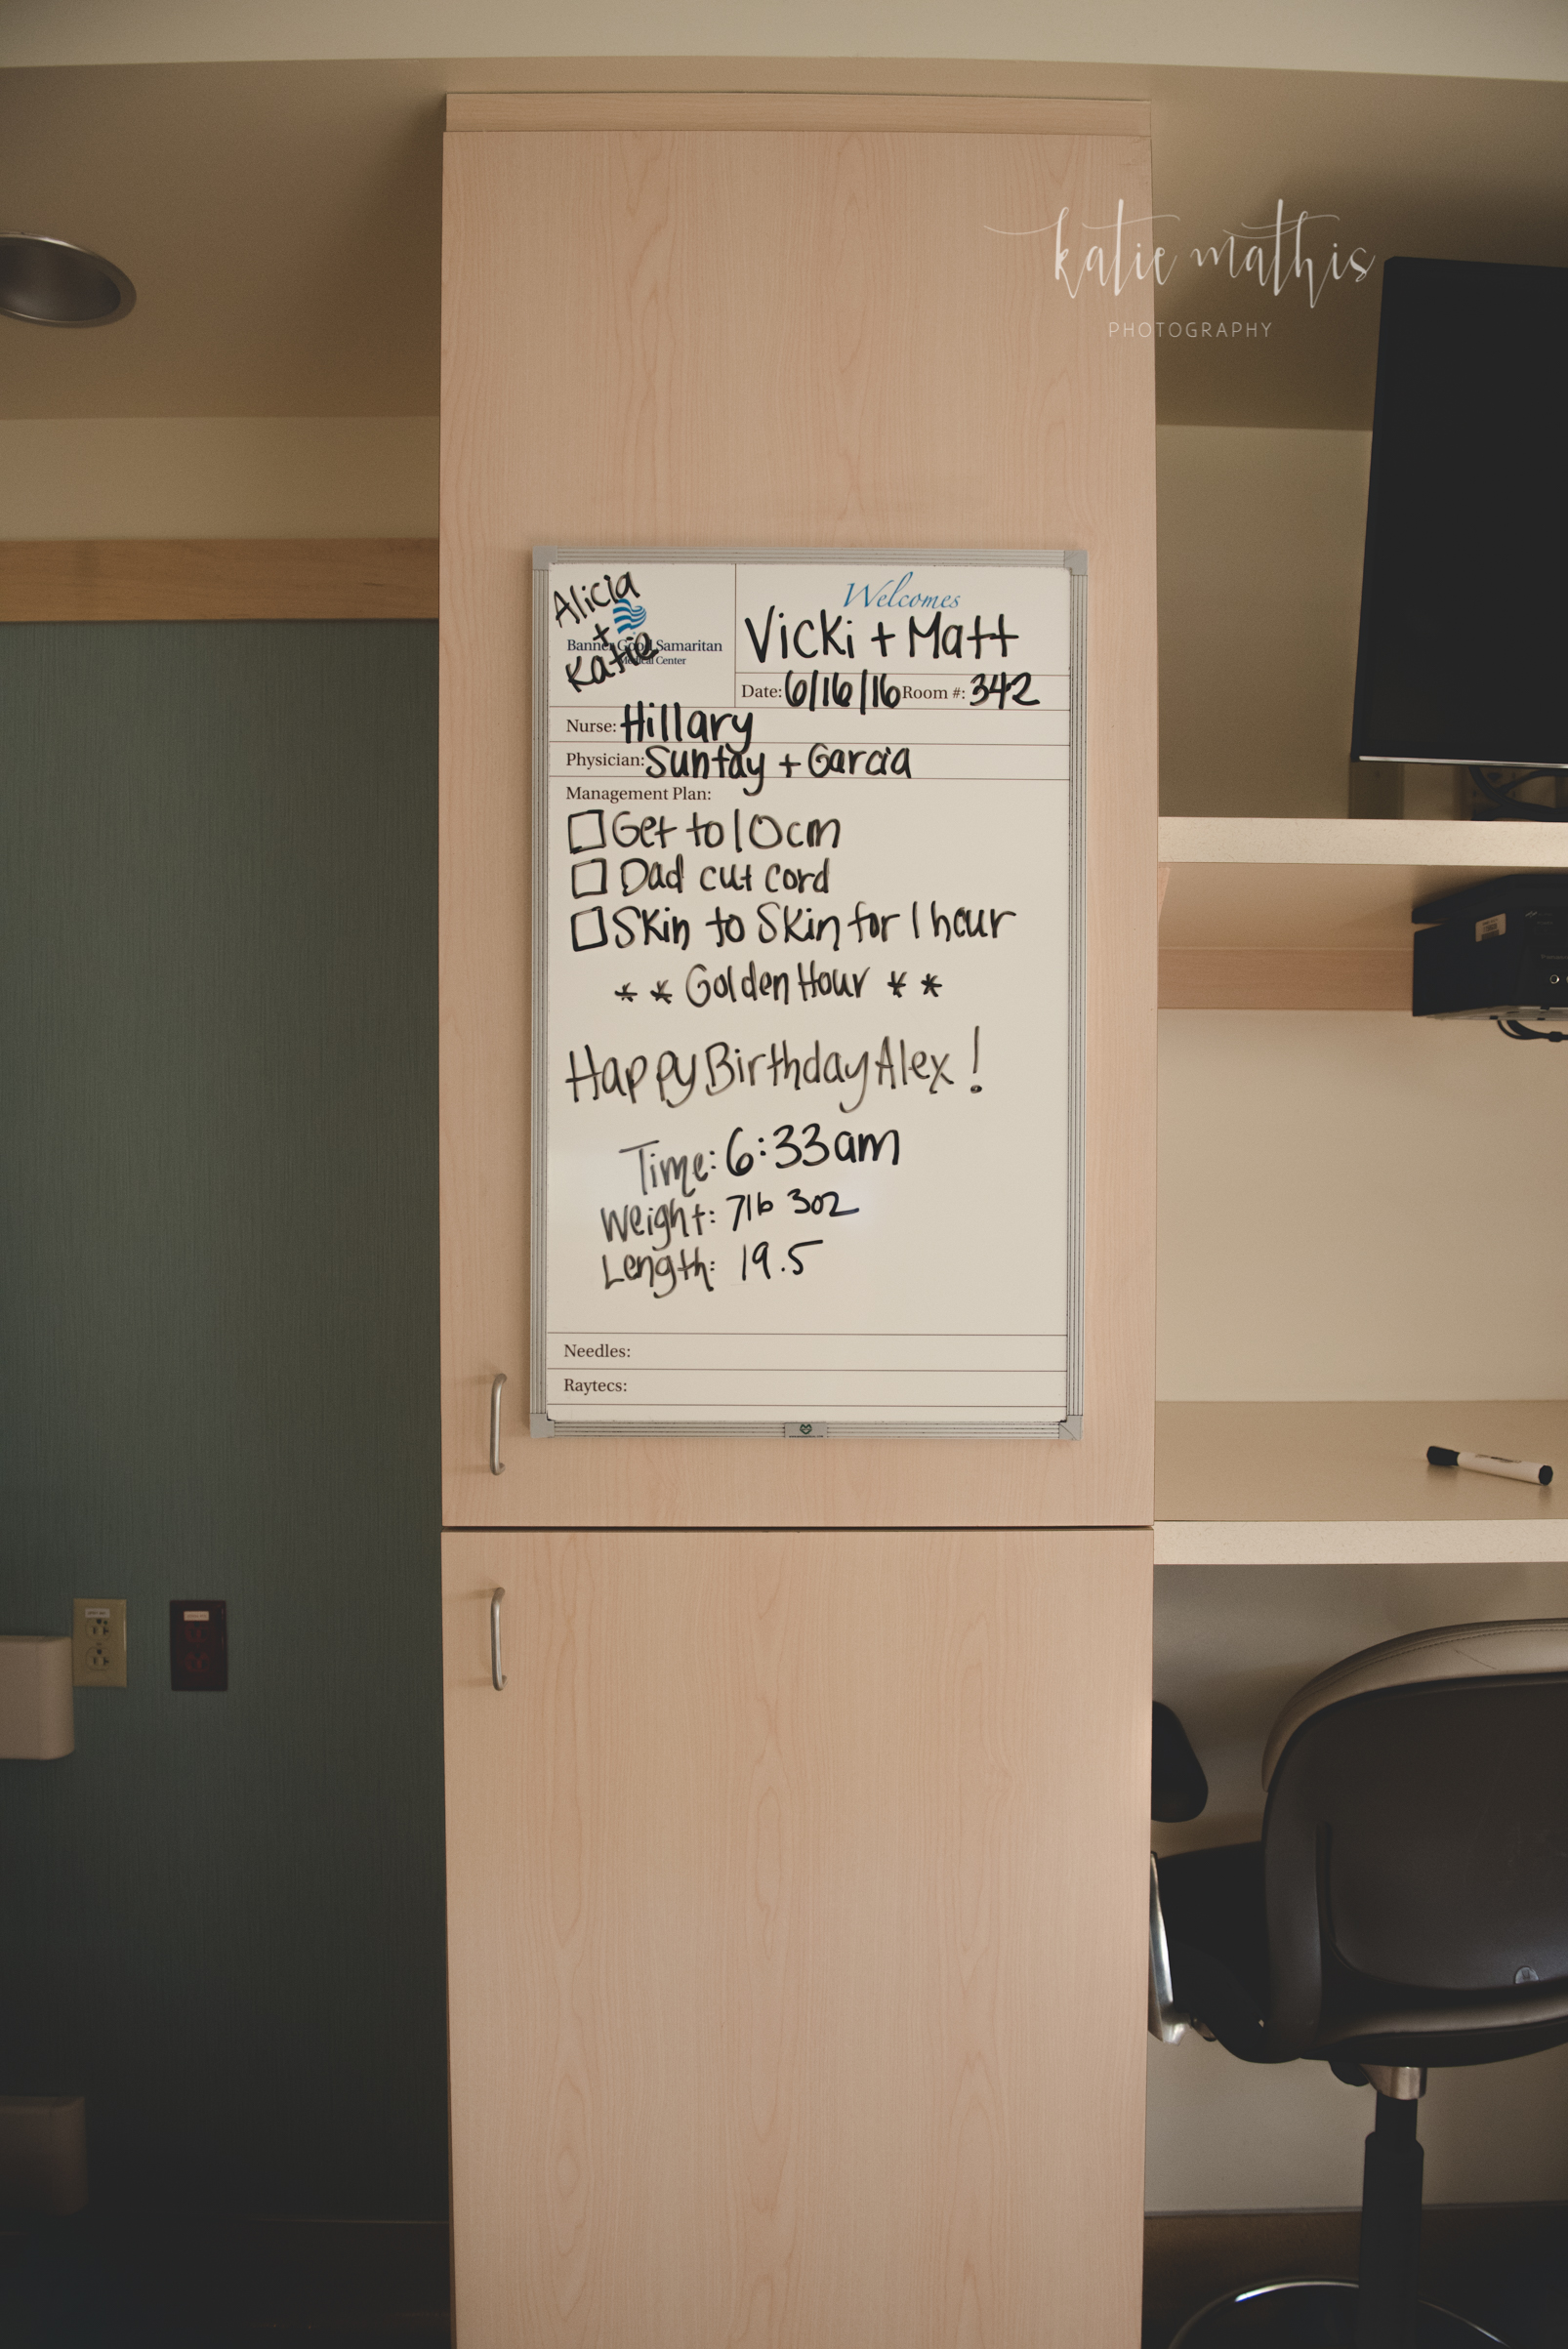 katie mathis
PHOTOGRAPHY
Alicia
+
Katie
Banner Good Samaritan
Medical Center
Welcomes
Vicki + Matt
Date: 6/16/16 Room #: 342
Nurse: Hillary
Physician: Suntay + Garcia
Management Plan:
Get to 10cm
Dad cut cord
Skin to Skin for 1 hour
* * Golden Hour * *
Happy Birthday Alex!
Time: 6:33am
Weight: 7lb 3oz
Length: 19.5
Needles:
Raytecs: